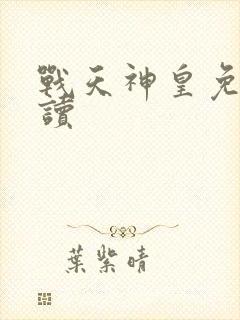 戰天神皇免
讀
葉紫晴